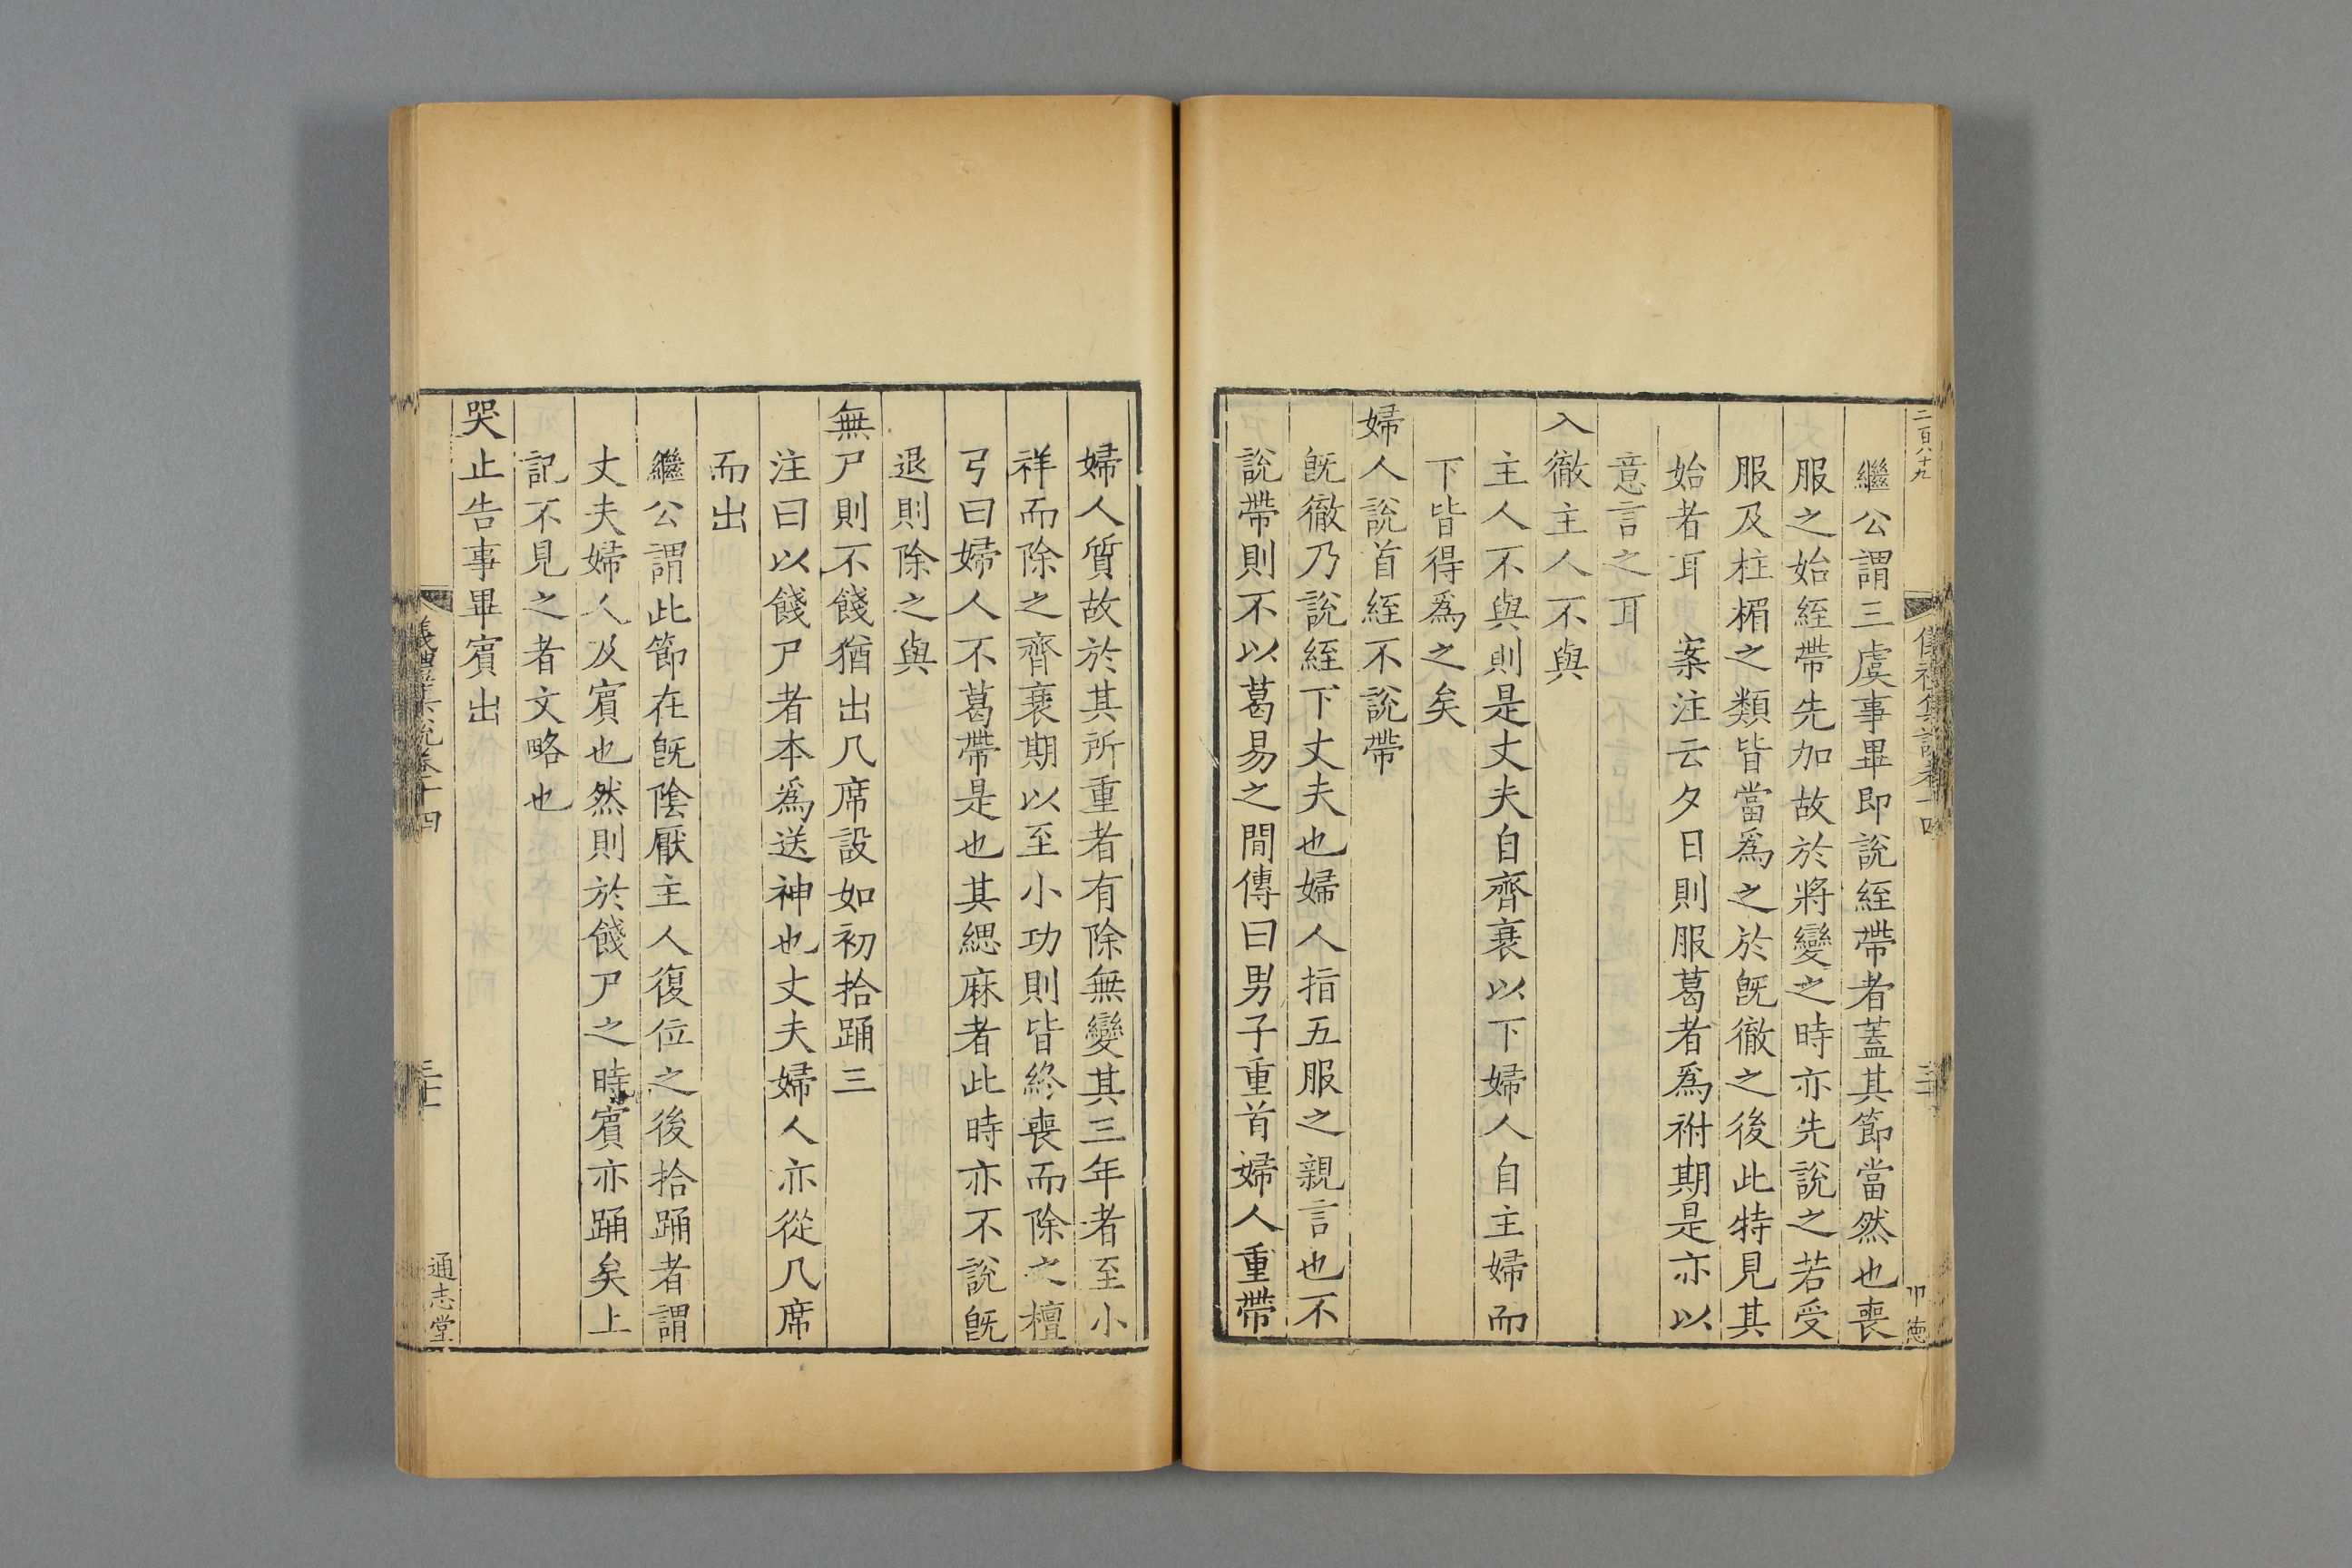 二百八十九
繼公謂三虞事畢即說絰帶者蓋其節當然也喪
服之始絰帶先加故於將變之時亦先說之若受
服及柱楣之類皆當爲之於旣徹之後此特見其
始者耳　案注云夕日則服葛者爲祔期是亦以
意言之耳
入徹主人不與
主人不與則是丈夫自齊衰以下婦人自主婦而
下皆得爲之矣
婦人說首絰不說帶
旣徹乃說絰下丈夫也婦人指五服之親言也不
說帶則不以葛易之閒傳曰男子重首婦人重帶
婦人質故於其所重者有除無變其三年者至小
祥而除之齊衰期以至小功則皆終喪而除之檀
弓曰婦人不葛帶是也其緦麻者此時亦不說旣
退則除之與
無尸則不餞猶出几席設如初拾踊三
注曰以餞尸者本爲送神也丈夫婦人亦從几席
而出
繼公謂此節在旣陰厭主人復位之後拾踊者謂
丈夫婦人及賓也然則於餞尸之時賓亦踊矣上
記不見之者文略也
哭止告事畢賓出
儀禮集說卷十四
通志堂